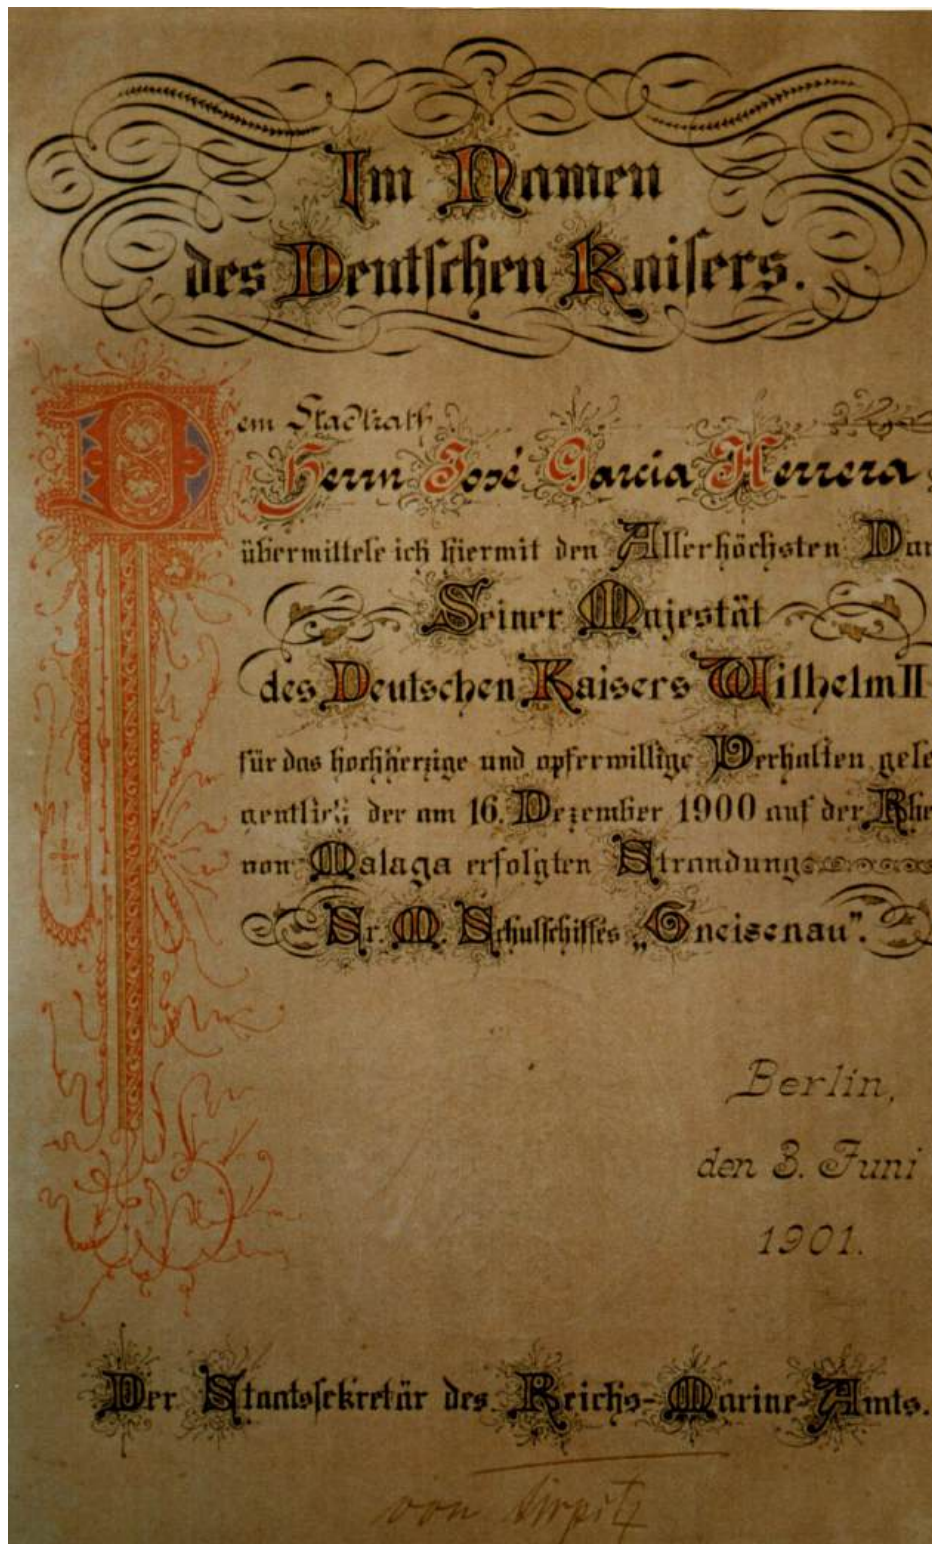 Im Namen
des Deutschen Kaisers.
Dem Stadtrath
Herrn José Garcia Herrera
übermittele ich hiermit den Allerhöchsten Dan
Seiner Majestät
des Deutschen Kaisers Wilhelm II
für das hochherzige und opferwillige Verhalten gele
gentlich der am 16. Dezember 1900 auf der Rhe
von Malaga erfolgten Strandung
Sr. M. Schulschiffes „Gneisenau”.
Berlin,
den 3. Juni
1901.
Der Staatssekretär des Reichs-Marine-Amts.
von Tirpitz